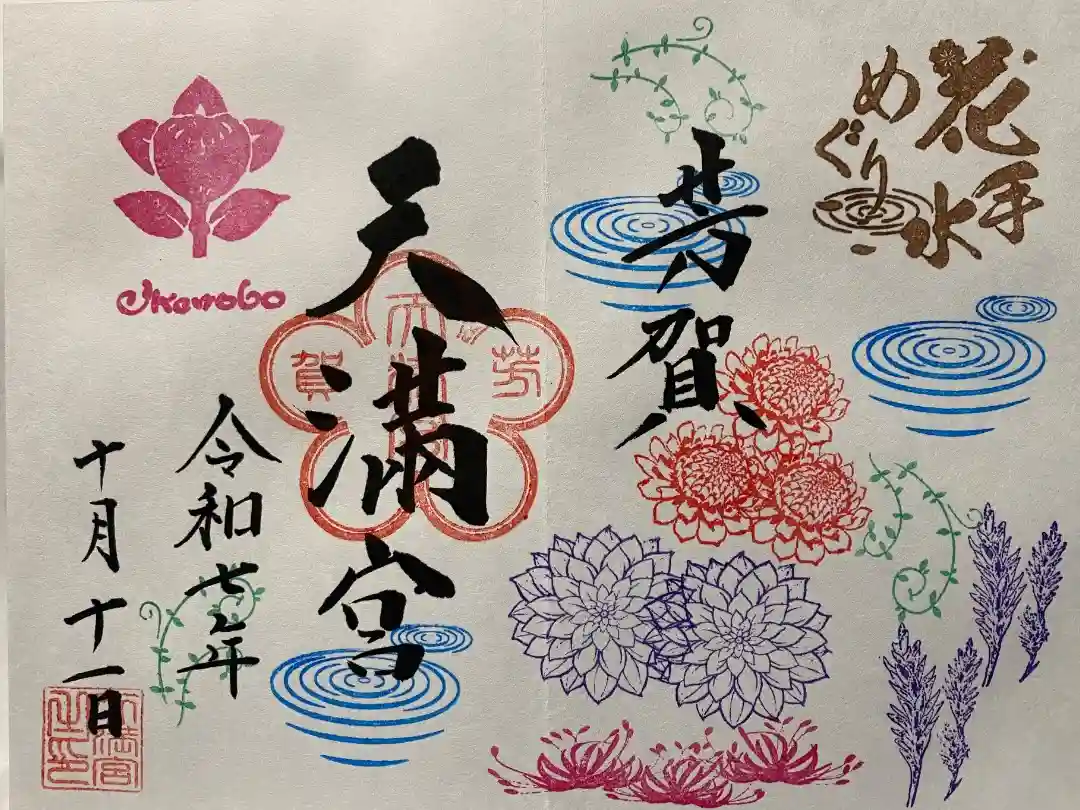 花手水
めぐり
芳賀
天満宮
芳賀
令和七年
十月十一日
Ikenobo